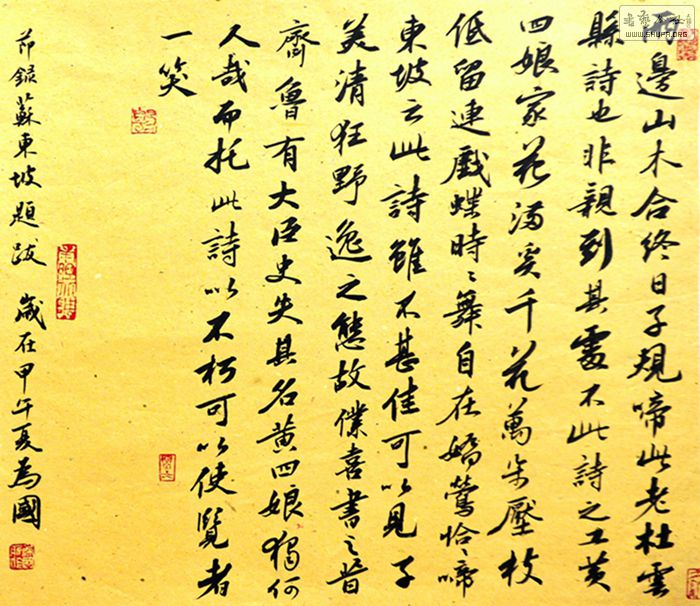 两邊山木合終日子規啼此老杜雲
縣詩也非親到其處不此詩之工黄
四娘家花满奚千花萬朵壓枝
低留連戲蝶時〻舞自在嬌鶯恰〻啼
東坡云此詩雖不甚佳可以見子
美清狂野逸之態故僕喜書之昔
齊魯有大臣史失其名黄四娘獨何
人哉而托此詩以不朽可以使覽者
一笑
節録蘇東坡題跋 歲在甲午夏為國
WWW.SHUFA.ORG